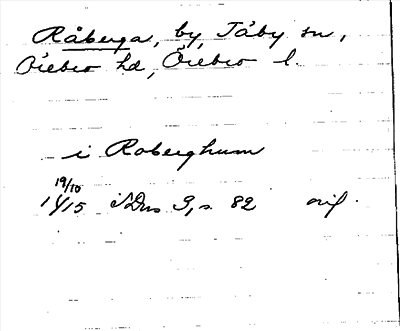 Råberga, by, Täby sn,
Örebro hd, Örebro l.
i Roberghum
19/10
1415 SDns 3, s. 82 orig.